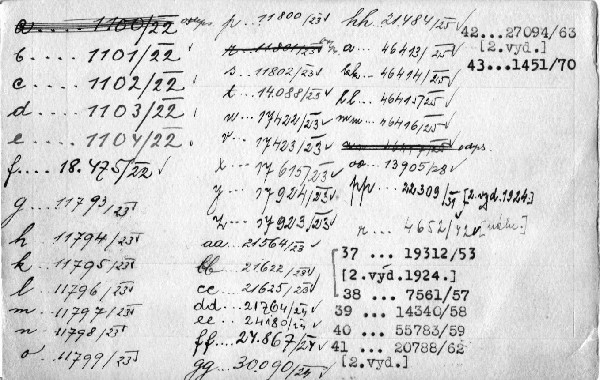 a) .... 1100/22 odps
b .... 1101/22
c .... 1102/22
d .... 1103/22
e .... 1104/22
f.... 18.475/22
g .... 11793/23
h .... 11794/23
k .... 11795/23
l .... 11796/23
m ... 11797/23
n .... 11798/23
o ... 11799/23
p ... 11800/23
r ... 11801/23
s ... 11802/23
t ... 14.088/23
u ... 17422/23
v ... 17423/23
x ... 17615/23
y ... 17924/23
z ... 17923/23
aa ... 21564/23
bb ... 21622/23
cc ... 21625/23
dd... 21764/24
ee ... 24180/24
ff... 27.867/24
gg ... 30.090/24
hh. 21484/25
a ... 46413/25
kk... 46414/25
ll ... 46415/25
mm... 46416/25
odps.
oo ... 13905/28
pp ... 22.309/31 [2.vyd.1924.]
r ... 4652/42
37 ... 19312/53
[2.vyd.1924.]
38 ... 7561/57
39 ... 14340/58
40 ... 55783/59
41 ... 20788/62
[2.vyd.]
42...27094/63
[2.vyd.]
43...1451/70